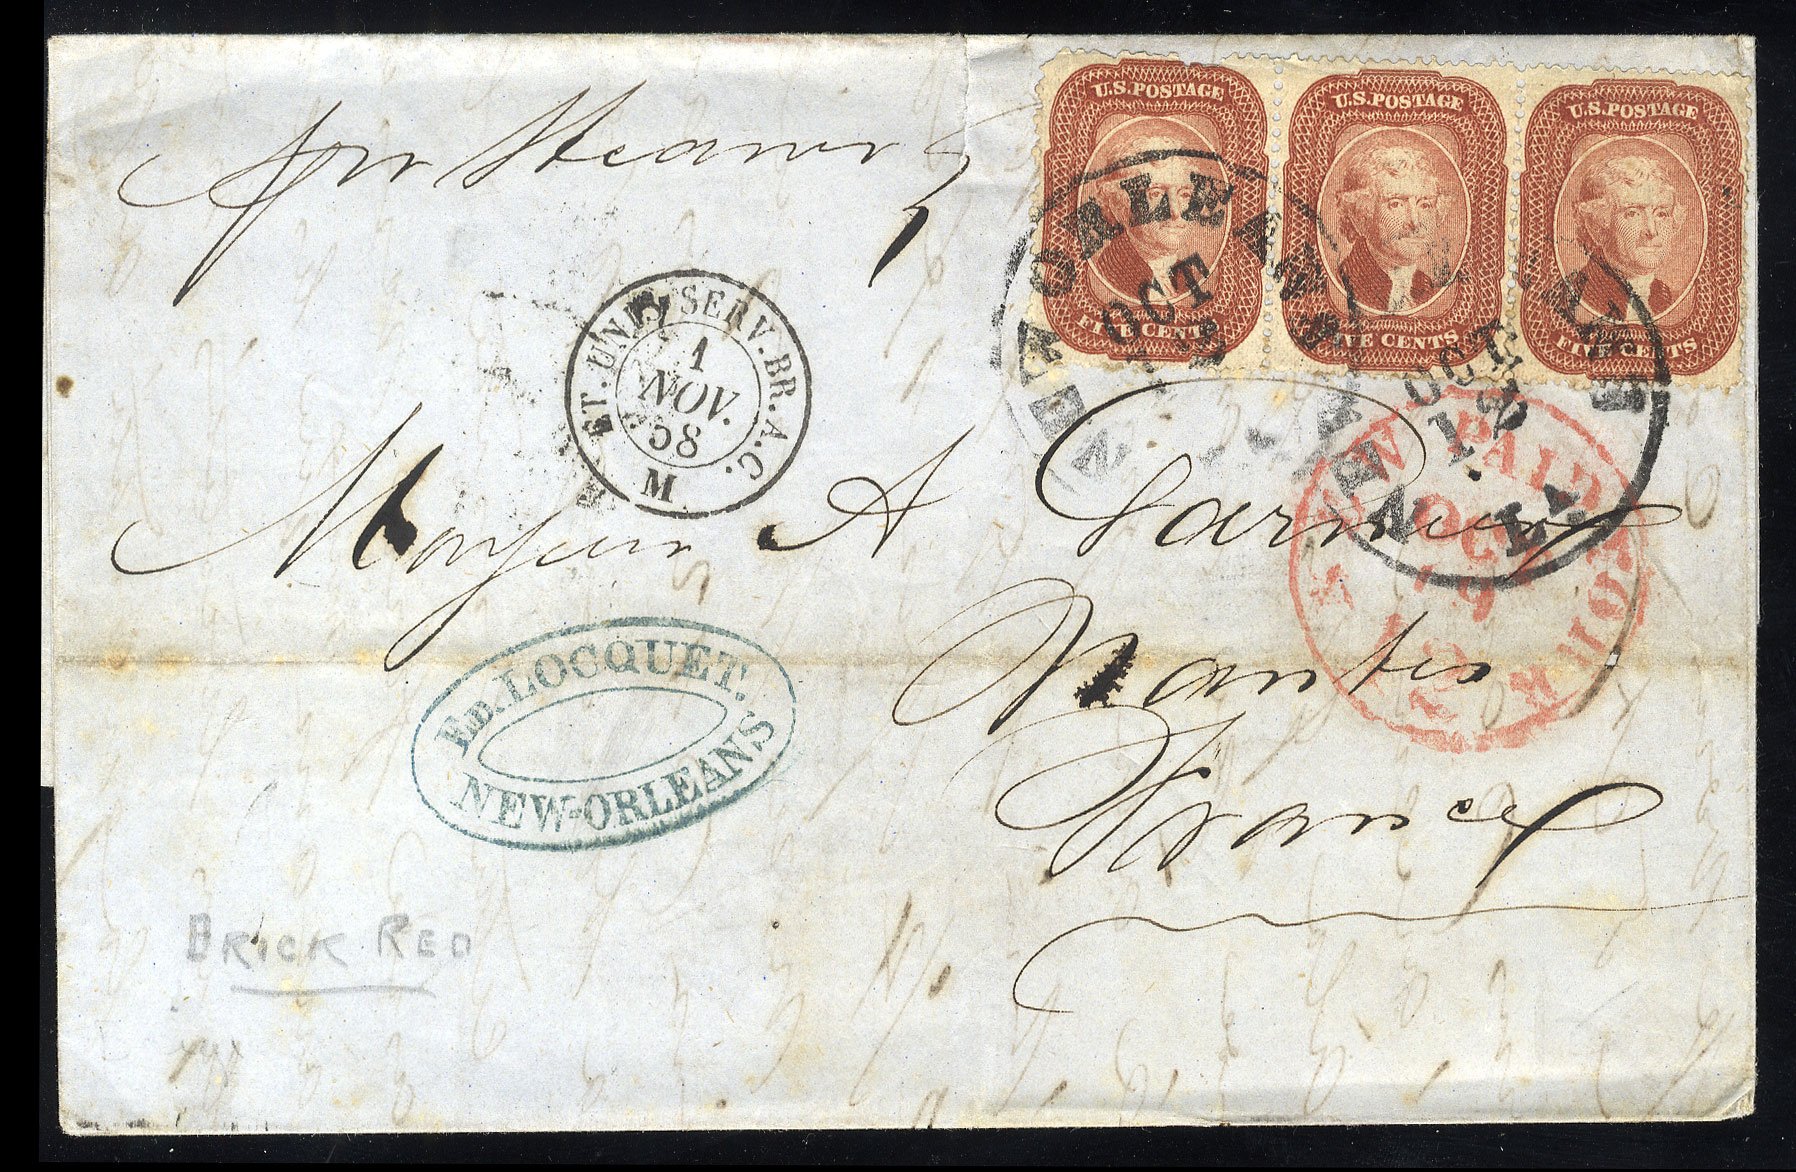 U.S.POSTAGE
FIVE CENTS
U.S.POSTAGE
FIVE CENTS
U.S.POSTAGE
FIVE CENTS
per Steamer
NEW ORLEANS
OCT
12
NEW ORLEANS
OCT
12
LA
ET. UNIS SERV. BR. A. C.
1
NOV.
58
M
NEW PAID YORK
OCT
19
12
Monsieur A
Nantes
France
ED. LOCQUET.
NEW-ORLEANS
BRICK RED